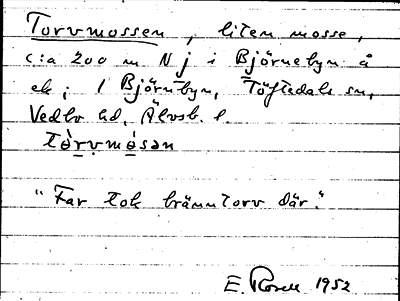 Torvmossen, liten mosse,
c:a 200 m N j i Björnebyn å
ek; 1 Björnbyn, Töftedals sn,
Vedbo hd, Älvsb. l.
tò̱rvmò̱sən
"Far tok bränntorv där."
E. Rosell 1952